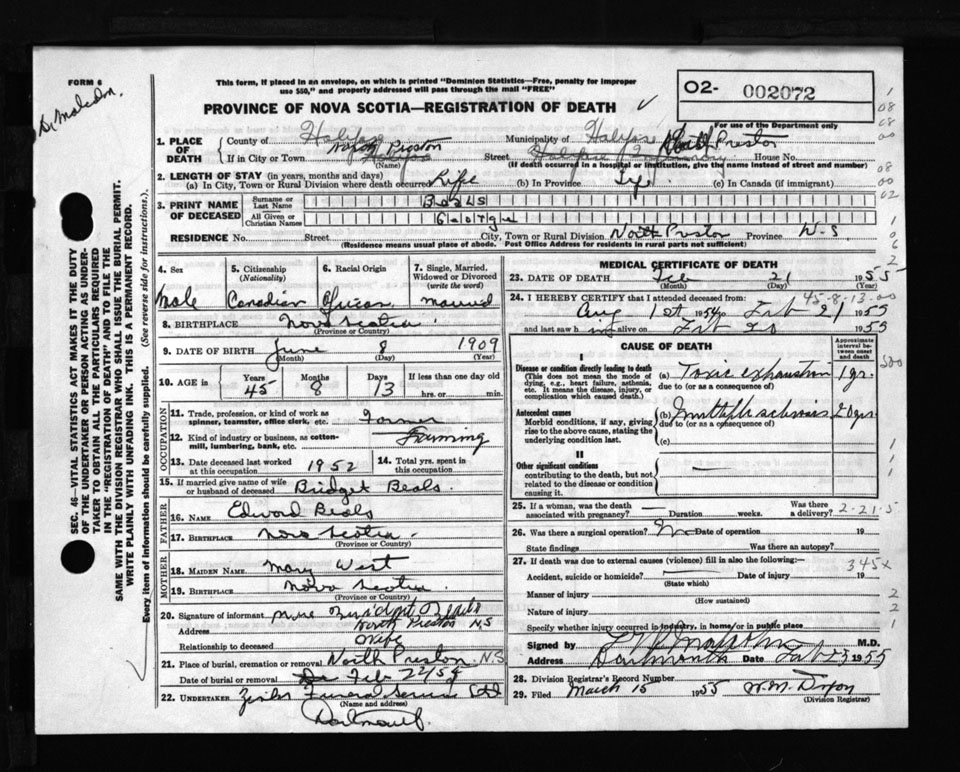 FORM 6
Dr Malcolm.
This form, if placed in an envelope, on which is printed "Dominion Statistics—Free, penalty for improper
use $50," and properly addressed will pass through the mail "FREE"
PROVINCE OF NOVA SCOTIA—REGISTRATION OF DEATH
02- 002072
For use of the Department only
SEC. 46—VITAL STATISTICS ACT MAKES IT THE DUTY
OF THE UNDERTAKER OR PERSON ACTING AS UNDER-
TAKER TO OBTAIN ALL THE PARTICULARS REQUIRED
IN THE "REGISTRATION OF DEATH" AND TO FILE THE
SAME WITH THE DIVISION REGISTRAR WHO SHALL ISSUE THE BURIAL PERMIT.
WRITE PLAINLY WITH UNFADING INK. THIS IS A PERMANENT RECORD.
Every item of information should be carefully supplied. (See reverse side for instructions.)
1. PLACE OF DEATH
County of Halifax Municipality of Halifax North Preston
If in City or Town North Preston Halifax Street Halifax House No.
(Name) (If death occurred in a hospital or institution, give the name instead of street and number)
2. LENGTH OF STAY (in years, months and days)
(a) In City, Town or Rural Division where death occurred Life (b) In Province Life (c) In Canada (if immigrant)
3. PRINT NAME OF DECEASED
Surname or Last Name Beals
All Given or Christian Names George
RESIDENCE No. Street City, Town or Rural Division North Preston Province N.S.
(Residence means usual place of abode. Post Office Address for residents in rural parts not sufficient)
4. Sex Male
5. Citizenship (Nationality) Canadian
6. Racial Origin African
7. Single, Married, Widowed or Divorced (write the word) married
8. BIRTHPLACE Nova Scotia
(Province or Country)
9. DATE OF BIRTH June 8 1909
(Month) (Day) (Year)
10. AGE in Years 45 Months 8 Days 13 If less than one day old hrs. or min.
OCCUPATION
11. Trade, profession, or kind of work as spinner, teamster, office clerk, etc. Farmer
12. Kind of industry or business, as cotton-mill, lumbering, bank, etc. Farming
13. Date deceased last worked at this occupation 1952
14. Total yrs. spent in this occupation
15. If married give name of wife or husband of deceased Bridget Beals.
FATHER
16. NAME Edward Beals
17. BIRTHPLACE Nova Scotia
(Province or Country)
MOTHER
18. MAIDEN NAME Mary West
19. BIRTHPLACE Nova Scotia
(Province or Country)
20. Signature of informant Beals
Address North Preston N.S
Relationship to deceased Wife
21. Place of burial, cremation or removal North Preston. N.S
Date of burial or removal Feb 22/55
22. UNDERTAKER Funeral Service Ltd
(Name and address)
Dartmouth.
MEDICAL CERTIFICATE OF DEATH
23. DATE OF DEATH Feb 21 1955
(Month) (Day)
45-8-13-00
24. I HEREBY CERTIFY that I attended deceased from:
Aug 1st 1954 to Feb 21 1955
and last saw him alive on Feb 20 1955
CAUSE OF DEATH
Approximate interval between onset and death
I
Disease or condition directly leading to death
(This does not mean the mode of dying, e.g., heart failure, asthenia, etc. It means the disease, injury, or complication which caused death.)
(a) Toxic exhaustion 1 yr.
due to (or as a consequence of)
Antecedent causes
Morbid conditions, if any, giving rise to the above cause, stating the underlying condition last.
(b) Multiple sclerosis 20 yrs
due to (or as a consequence of)
(c)
II
Other significant conditions
contributing to the death, but not related to the disease or condition causing it.
25. If a woman, was the death associated with pregnancy? Duration weeks. Was there a delivery? 2-21-5
26. Was there a surgical operation? No Date of operation 19
State findings Was there an autopsy?
27. If death was due to external causes (violence) fill in also the following: 345x
Accident, suicide or homicide? Date of injury 19
(State which)
Manner of injury
(How sustained)
Nature of injury
Specify whether injury occurred in industry, in home/or in public place
Signed by Malcolm M.D.
Address Dartmouth Date Feb 23 1955
28. Division Registrar's Record Number
29. Filed March 15 1955 W.M. Dixon
(Division Registrar)